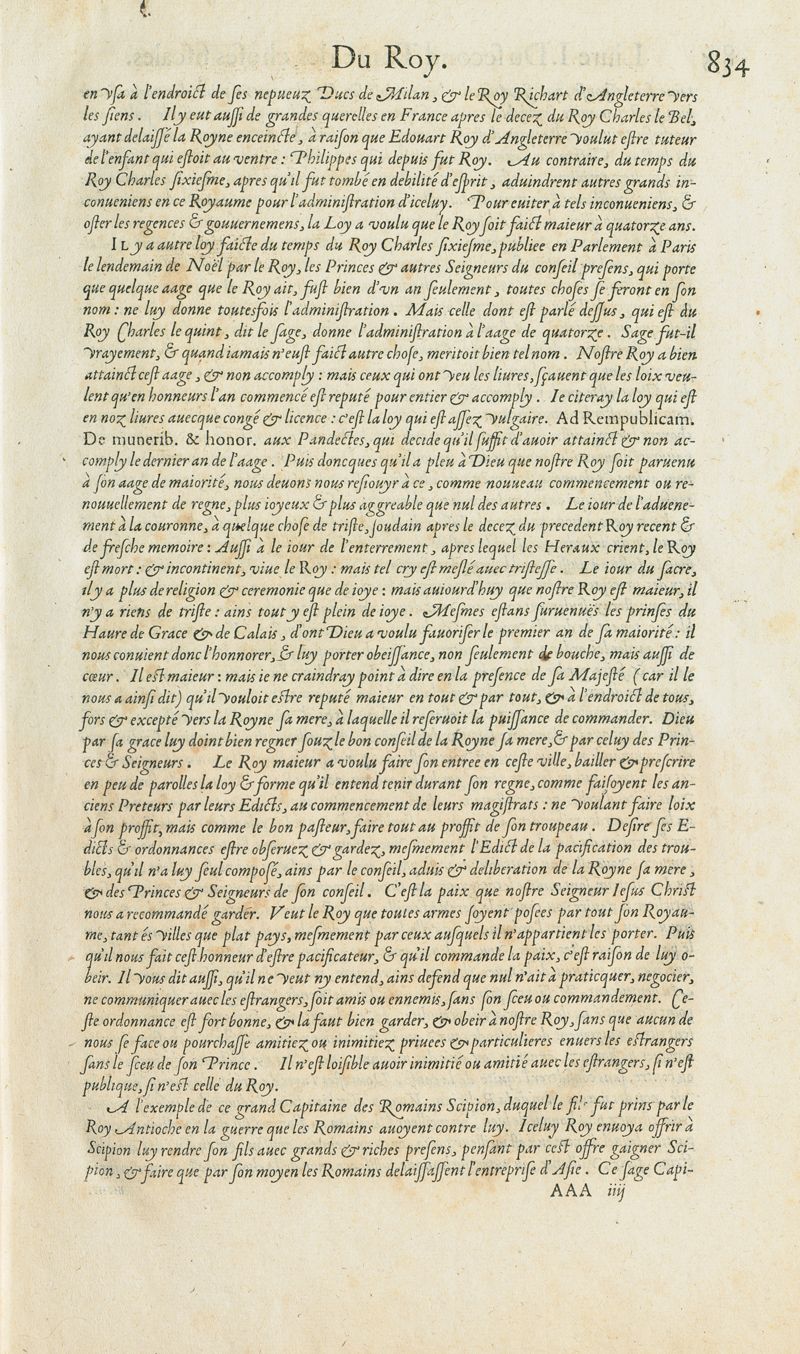 Du Roy. 834
en vſa à l'endroict de ſes nepueuz Ducs de Milan, & le Roy Richart d'Angleterre vers
les ſiens. Il y eut auſſi de grandes querelles en France apres le decez du Roy Charles le Bel,
ayant delaiſſé la Royne enceincte, à raiſon que Edouart Roy d'Angleterre voulut eſtre tuteur
de l'enfant qui eſtoit au ventre : Philippes qui depuis fut Roy. Au contraire, du temps du
Roy Charles ſixieſme, apres qu'il fut tombé en debilité d'eſprit, aduindrent autres grands in-
conueniens en ce Royaume pour l'adminiſtration d'iceluy. Pour euiter à tels inconueniens, &
oſter les regences & gouuernemens, la Loy a voulu que le Roy ſoit faict maieur à quatorze ans.
IL y a autre loy faicte du temps du Roy Charles ſixieſme, publiee en Parlement à Paris
le lendemain de Noël par le Roy, les Princes & autres Seigneurs du conſeil preſens, qui porte
que quelque aage que le Roy ait, fuſt bien d'vn an ſeulement, toutes choſes ſe feront en ſon
nom : ne luy donne toutesfois l'adminiſtration. Mais celle dont eſt parlé deſſus, qui eſt du
Roy Charles le quint, dit le ſage, donne l'adminiſtration à l'aage de quatorze. Sage fut-il
vrayement, & quand iamais n'euſt faict autre choſe, meritoit bien tel nom. Noſtre Roy a bien
attainct ceſt aage, & non accomply : mais ceux qui ont veu les liures, ſçauent que les loix veu-
lent qu'en honneurs l'an commencé eſt reputé pour entier & accomply. Ie citeray la loy qui eſt
en noz liures auecque congé & licence : c'eſt la loy qui eſt aſſez vulgaire. Ad Rempublicam.
De munerib. & honor. aux Pandectes, qui decide qu'il ſuffit d'auoir attainct & non ac-
comply le dernier an de l'aage. Puis doncques qu'il a pleu à Dieu que noſtre Roy ſoit paruenu
à ſon aage de maiorité, nous deuons nous reſiouyr à ce, comme nouueau commencement ou re-
nouuellement de regne, plus ioyeux & plus aggreable que nul des autres. Le iour de l'aduene-
ment à la couronne, à quelque choſe de triſte, ſoudain apres le decez du precedent Roy recent &
de freſche memoire : Auſſi à le iour de l'enterrement, apres lequel les Heraux crient, le Roy
eſt mort : & incontinent, viue le Roy : mais tel cry eſt meſlé auec triſteſſe. Le iour du ſacre,
il y a plus de religion & ceremonie que de ioye : mais auiourd'huy que noſtre Roy eſt maieur, il
n'y a riens de triſte : ains tout y eſt plein de ioye. Meſmes eſtans ſuruenuës les prinſes du
Haure de Grace & de Calais, d'ont Dieu a voulu fauoriſer le premier an de ſa maiorité : il
nous conuient donc l'honnorer, & luy porter obeiſſance, non ſeulement de bouche, mais auſſi de
cœur. Il eſt maieur : mais ie ne craindray point à dire en la preſence de ſa Majeſté (car il le
nous a ainſi dit) qu'il vouloit eſtre reputé maieur en tout & par tout, & à l'endroict de tous,
fors & excepté vers la Royne ſa mere, à laquelle il reſeruoit la puiſſance de commander. Dieu
par ſa grace luy doint bien regner ſouz le bon conſeil de la Royne ſa mere, & par celuy des Prin-
ces & Seigneurs. Le Roy maieur a voulu faire ſon entree en ceſte ville, bailler & preſcrire
en peu de parolles la loy & forme qu'il entend tenir durant ſon regne, comme faiſoyent les an-
ciens Preteurs par leurs Edicts, au commencement de leurs magiſtrats : ne voulant faire loix
à ſon proffit, mais comme le bon paſteur, faire tout au proffit de ſon troupeau. Deſire ſes E-
dicts & ordonnances eſtre obſeruez & gardez, meſmement l'Edict de la pacification des trou-
bles, qu'il n'a luy ſeul compoſé, ains par le conſeil, aduis & deliberation de la Royne ſa mere,
& des Princes & Seigneurs de ſon conſeil. C'eſt la paix que noſtre Seigneur Ieſus Chriſt
nous a recommandé garder. Veut le Roy que toutes armes ſoyent poſees par tout ſon Royau-
me, tant és villes que plat pays, meſmement par ceux auſquels il n'appartient les porter. Puis
qu'il nous fait ceſt honneur d'eſtre pacificateur, & qu'il commande la paix, c'eſt raiſon de luy o-
beir. Il vous dit auſſi, qu'il ne veut ny entend, ains defend que nul n'ait à practicquer, negocier,
ne communiquer auec les eſtrangers, ſoit amis ou ennemis, ſans ſon ſceu ou commandement. Ce-
ſte ordonnance eſt fort bonne, & la faut bien garder, & obeir à noſtre Roy, ſans que aucun de
nous ſe face ou pourchaſſe amitiez ou inimitiez priuees & particulieres enuers les eſtrangers
ſans le ſceu de ſon Prince. Il n'eſt loiſible auoir inimitié ou amitié auec les eſtrangers, ſi n'eſt
publique, ſi n'eſt celle du Roy.
A l'exemple de ce grand Capitaine des Romains Scipion, duquel le fils fut prins par le
Roy Antioche en la guerre que les Romains auoyent contre luy. Iceluy Roy enuoya offrir à
Scipion luy rendre ſon fils auec grands & riches preſens, penſant par ceſt offre gaigner Sci-
pion, & faire que par ſon moyen les Romains delaiſſaſſent l'entrepriſe d'Aſie. Ce ſage Capi-
AAA iiij